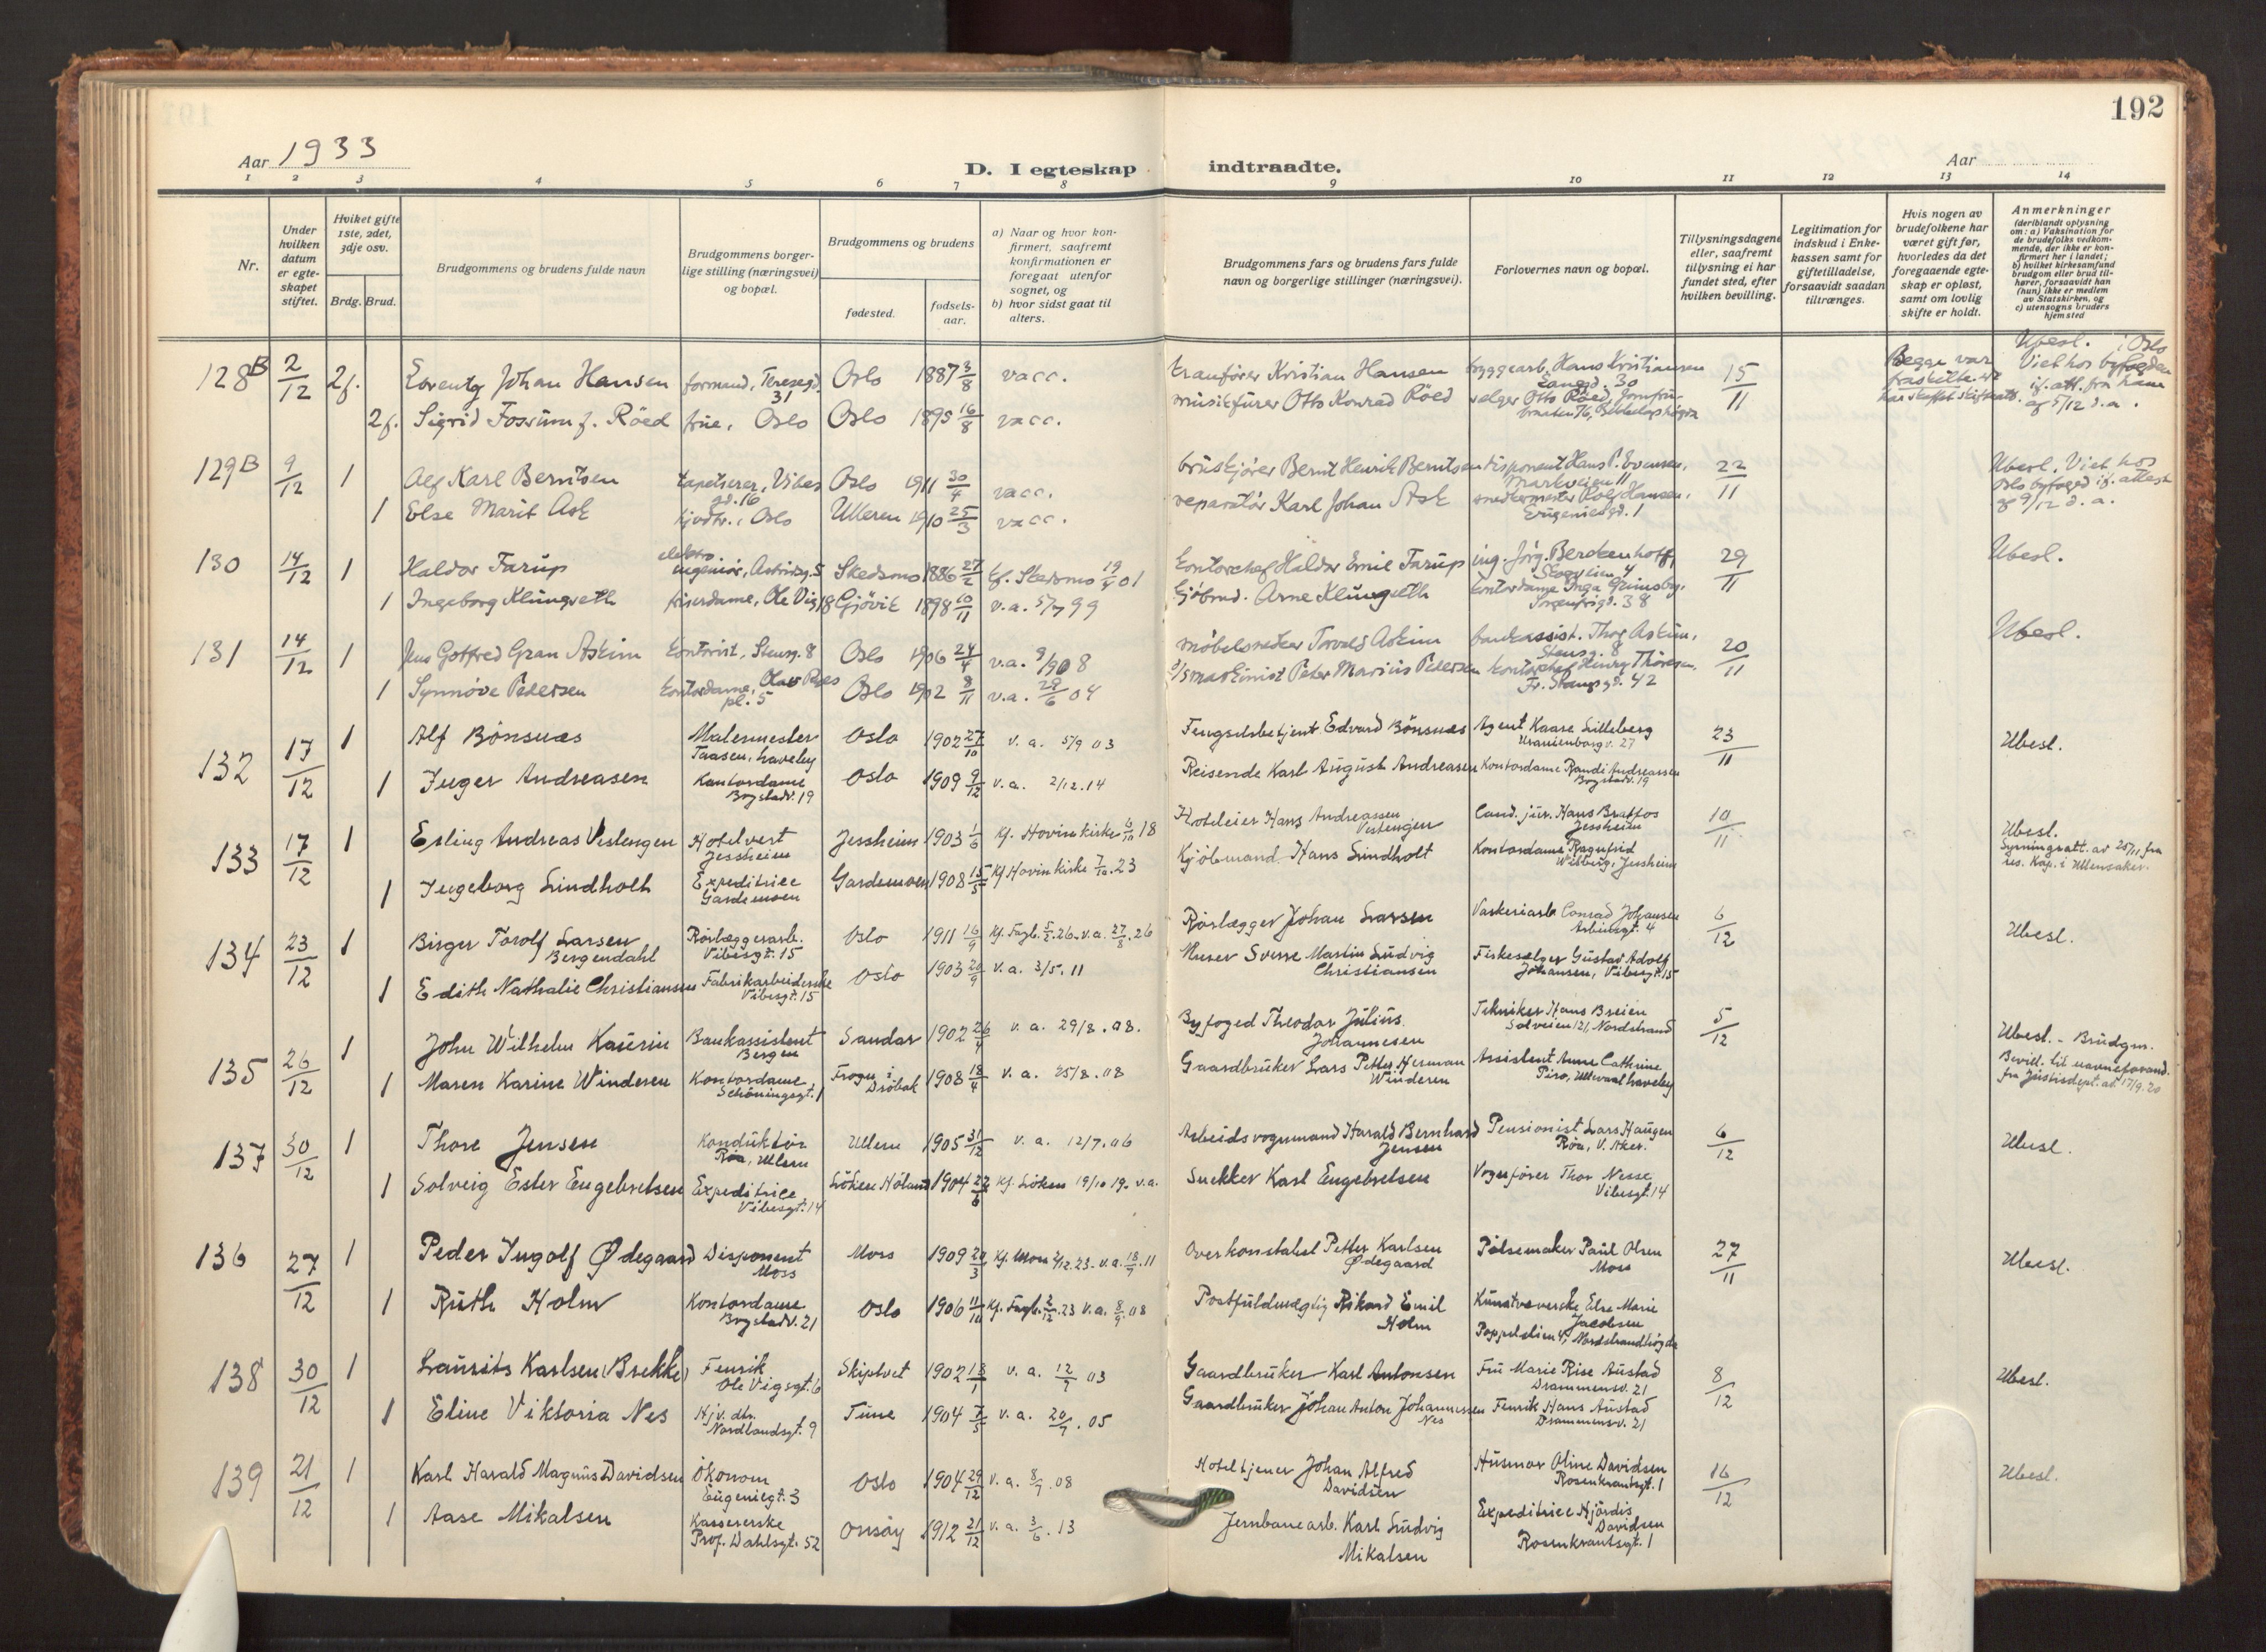 192
Aar 1933
D. I egteskap indtraadte.
Aar
1 2 3 4 5 6 7 8 9 10 11 12 13 14
Nr.
Under hvilken datum er egteskapet stiftet.
Hviket gifte 1ste, 2det, 3dje osv.
Brdg. Brud.
Brudgommens og brudens fulde navn
Brudgommens borgerlige stilling (næringsvei) og bopæl.
Brudgommens og brudens
fødested.
fødselsaar.
a) Naar og hvor konfirmert, saafremt konfirmationen er foregaat utenfor sognet, og
b) hvor sidst gaat til alters.
Brudgommens fars og brudens fars fulde navn og borgerlige stillinger (næringsvei).
Forlovernes navn og bopæl.
Tillysningsdagene eller, saafremt tillysning ei har fundet sted, efter hvilken bevilling.
Legitimation for indskud i Enkekassen samt for giftetilladelse, forsaavidt saadan tiltrænges.
Hvis nogen av brudefolkene har været gift før, hvorledes da det foregaaende egteskap er opløst, samt om lovlig skifte er holdt.
Anmerkninger (deriblandt oplysning om: a) Vaksination for de brudefolks vedkommende, der ikke er konfirmert her i landet; b) hvilket kirkesamfund brudgom eller brud tilhører, forsaavidt han (hun) ikke er medlem av Statskirken, og c) utensogns bruders hjemsted
128B 2/12 2f. Lorentz Johan Hansen formand, Teresegd. 31 Oslo 1887 3/8 vacc. kranfører Kristian Hansen bryggearb. Hans Kristiansen 15/11 Begge var fraskilte Ubesl. Viet hos byfogden i Oslo if. att. fra ham af 5/12 d.a.
2f. Sigrid Fossum f. Röed frue, Oslo Oslo 1895 16/8 vacc. musikfører Otto Konrad Röed selger Otto Röed
129B 9/12 1 Alf Karl Berntsen tapetserer, Vibes gd. 16 Oslo 1911 30/4 vacc. bruskjører Bernt Henrik Berntsen disponent Hans P. Evensen, Markveien 11 22/11 Ubesl. Viet hos Oslo byfoged if. attest af 9/12 d.a.
1 Else Marit Ask hjvdtr., Oslo Ulleren 1910 25/3 vacc. reparatör Karl Johan Ask snedkermester Rolf Hansen, Eugeniesgd. 1
130 14/12 1 Haldor Farup elektro ingeniør, Astridsg. 5 Skedsmo 1886 27/2 kf. Skedsmo 19/4 01 kontorchef Haldor Emil Farup ing. Jörg. Berckenhoff, Skogveien 4 29/11 Ubesl.
1 Ingeborg Klungseth friserdame, Ole Vig. 18 Gjövik 1898 10/11 v.a. 5/7 99 kjöbmd. Arne Klungseth kontordame Inga Grimsby, Sorgenfrigd. 38
131 14/12 1 Jens Gotfred Gran Askim kontorist, Stensg. 8 Oslo 1906 24/4 v.a. 9/9 08 möbelsnedker Torvald Askim bankassist. Thor Askim, Stensg. 8 20/11 Ubesl.
1 Synnöve Pedersen kontordame, Olav Ryes pl. 5 Oslo 1902 8/11 v.a. 29/6 04 d/s maskinist Peter Marius Pedersen kontorchef Henry Thoresen, Fr. Stangs gd. 42
132 17/12 1 Alf Bönsnæs Malermester Taasen, haveby Oslo 1902 27/10 v. a. 5/9 03 Fengselsbetjent Edvard Bönsnæs Agent Kaare Lilleberg Uranienborgv. 27 23/11 Ubesl.
1 Inger Andreasen Kontordame Bogstadv. 19 Oslo 1909 9/12 v. a. 2/12.14 Reisende Karl August Andreasen Kontordame Randi Andreassen Bogstadv. 19
133 17/12 1 Erling Andreas Vestengen Hotelvert Jessheim Jessheim 1903 1/6 kf. Hovin kirke 6/10 18 Hoteleier Hans Andreassen Vestengen Cand. jur. Hans Brattos Jessheim 10/11 Ubesl. Lysningsatt. av 25/11 fra res. Kap. i Ullensaker.
1 Ingeborg Lindholt Expeditrice Gardemoen Gardemoen 1908 15/5 Kf Hovin kirke 7/10.23 Kjöbmand Hans Lindholt Kontordame Ragnfrid Wilberg, Jessheim
134 23/12 1 Birger Torolf Larsen Bergendahl Rörlæggerarb. Vibesgt. 15 Oslo 1911 16/9 Kf. Fagb. 5/2.26. v.a. 27/8.26 Rörlægger Johan Larsen Vaskeriarb. Conrad Johansen Arbiensgt. 4 6/12 Ubesl.
1 Edith Nathalie Christiansen Fabrikarbeiderske Vibesgt. 15 Oslo 1903 20/9 v. a. 3/5. 11 Murer Sverre Martin Ludvig Christiansen Fiskesælger Gustav Adolf Johansen, Vibesgt. 15
135 26/12 1 John Wilhelm Kaurin Bankassistent Bergen Sandar 1902 26/4 v. a. 29/8. 08. Byfoged Theodor Julius Johannesen Tekniker Hans Breien Solveien 121, Nordstrand 5/12 Ubesl. - Brudgm. Bevill. til navneforand. fra Justisdept. av 17/9.20
1 Maren Karine Winderen Kontordame Schöningsgt. 1 Frogn i Dröbak 1908 18/4 v. a. 25/8. 08 Gaardbruker Lars Petter Herman Winderen Assistent Anne Cathrine Piro, Ullevaal haveby
137 30/12 1 Thore Jensen Konduktör Röa, Ullern Ullern 1905 31/12 v. a. 12/7. 06 Arbeidsvognmand Harald Bernhard Jensen Pensionist Lars Haugen Röa, V. Aker. 6/12 Ubesl.
1 Solveig Ester Engebretsen Expeditrice Vibesgt. 14 Löken Höland 1904 22/6 Kf. Löken 19/10 19. v.a. Snekker Karl Engebretsen Vognfører Thor Nesse Vibesgt. 14
136 27/12 1 Peder Ingolf Ødegaard Disponent Moss Moss 1909 20/3 Kf. Moss 2/12.23 - v.a. 18/7.11 Overkonstabel Petter Karlsen Ødegaard Pölsemaker Paul Olsen Moss 27/11 Ubesl.
1 Ruth Holm Kontordame Bogstadv. 21 Oslo 1906 11/10 Kf. Fagb. 2/12.23 v.a. 8/9.08 Postfuldmægtig Rikard Emil Holm Kunstveverske Else Marie Jacobsen Poppelalleen 4, Nordstrandhögda
138 30/12 1 Laurits Karlsen (Brekke) Fenrik Ole Vigsgt. 6 Skiptvet 1902 18/1 v. a. 12/7 03 Gaardbruker Karl Antonsen Fru Marie Rise Austad Drammensv. 21 8/12 Ubesl.
1 Eline Viktoria Nes Hjv. dtr. Nordlandsgt. 9 Tune 1904 7/5 v. a. 20/7. 05 Gaardbruker Johan Anton Johannessen Nes Fenrik Hans Austad Drammensv. 21
139 21/12 1 Karl Harald Magnus Davidsen Ökonom Eugeniegt. 3 Oslo 1904 29/12 v. a. 8/7. 08 Hoteltjener Johan Alfred Davidsen Husmor Oline Davidsen Rosenkrantsgt. 1 16/12 Ubesl.
1 Aase Mikalsen Kassererske Prof. Dahlsgt. 52 Onsöy 1912 21/12 v. a. 3/6. 13 Jernbanearb. Karl Ludvig Mikalsen Expeditrice Hjördis Davidsen Rosenkrantsgt. 1